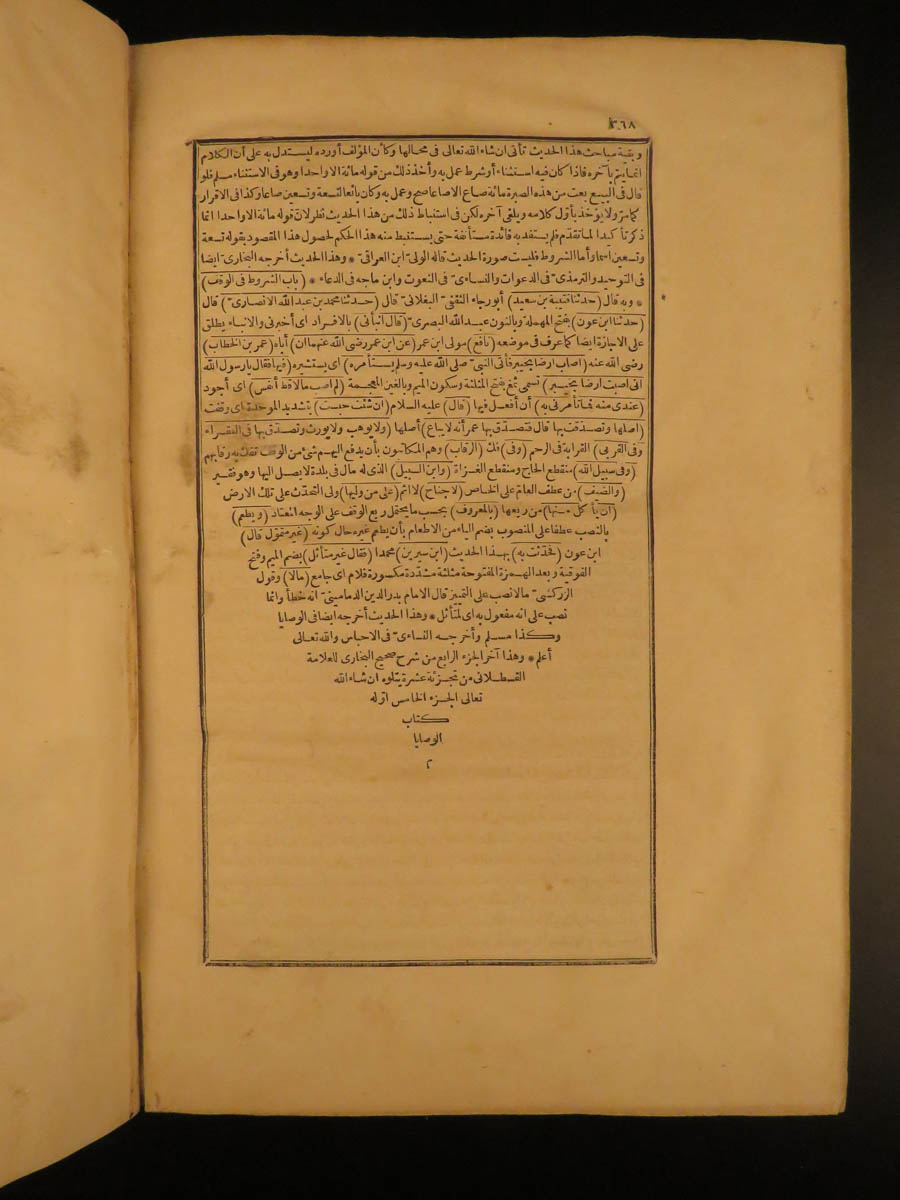 ٣٦٨
وبقية مباحث هذا الحديث تأتى ان شاء الله تعالى فى محالها وكأن المؤلف أورده ليستدل به على أن الكلام
انما يتم بآخره فاذا كان فيه استثناء أو شرط عمل به وأخذ ذلك من قوله مائة الا واحدا وهو فى الاستثناء مسلم فلو
قال فى البيع بعت من هذه الصبرة مائة صاع الا صاعا صح وعمل به وكان بائعا لتسعة وتسعين صاعا وكذا فى الاقرار
كما مر ولا يؤخذ بأول كلامه ويلغى آخره لكن فى استنباط ذلك من هذا الحديث نظر لان قوله مائة الا واحدا انما
ذكر تأكيدا لما تقدم فلم يستفد به فائدة مستأنفة حتى يستنبط منه هذا الحكم لحصول هذا المقصود بقوله تسعة
وتسعين اسما وأما الشروط فليست صورة الحديث قاله الولى ابن العراقى * وهذا الحديث أخرجه البخارى ايضا
فى التوحيد والترمذى فى الدعوات والنساءى فى النعوت وابن ماجه فى الدعاء * (باب الشروط فى الوقف)
* وبه قال (حدثنا قتيبة بن سعيد) أبو رجاء الثقفى البغلانى قال (حدثنا محمد بن عبد الله الانصارى) قال
(حدثنا ابن عون) بفتح المهملة وبالنون عبد الله البصرى (قال انبأنى) بالافراد اى أخبرنى والانباء يطلق
على الاجازة ايضا كما عرف فى موضعه (نافع) مولى ابن عمر (عن ابن عمر رضى الله عنهما ان) أباه (عمر بن الخطاب)
رضى الله عنه (اصاب ارضا بخيبر فأتى النبى صلى الله عليه وسلم يستأمره) اى يستشيره (فيها فقال يارسول الله
انى اصبت ارضا بخيبر) تسمى ثمغ بفتح المثلثة وسكون الميم وبالغين المعجمة (لم اصب مالا قط أنفس) اى أجود
(عندى منه فما تأمرنى به) أن أفعل فيها (قال) عليه السلام (ان شئت حبست) بتشديد الموحدة اى وقفت
(اصلها وتصدقت بها قال فتصدق بها عمر أنه لا يباع) أصلها (ولا يوهب ولا يورث وتصدق بها فى الفقراء
وفى القربى) القرابة فى الرحم (وفى) فك (الرقاب) وهم المكاتبون بأن يدفع اليهم شئ من الوقف تفك به رقابهم
(وفى سبيل الله) منقطع الحاج ومنقطع الغزاة (وابن السبيل) الذى له مال فى بلدة لا يصل اليها وهو فقير
(والضيف) من عطف العام على الخاص (لا جناح) لا اثم (على من وليها) ولى التحدث على تلك الارض
(أن يأكل منها) من ريعها (بالمعروف) بحسب ما يحتمل ريع الوقف على الوجه المعتاد (ويطعم)
بالنصب عطفا على المنصوب بضم الياء من الاطعام بأن يطعم غيره حال كونه (غير متمول قال)
ابن عون (فحدثت به) بهذا الحديث (ابن سيرين) محمدا (فقال غير متأثل) بضم الميم وفتح
الفوقية وبعد الهمزة المفتوحة مثلثة مشددة مكسورة فلام اى جامع (مالا) وقول
الزركشى مالا نصب على التمييز قال الامام بدر الدين الدمامينى انه خطأ وانما
نصب على انه مفعول به اى لمتأثل * وهذا الحديث أخرجه ايضا فى الوصايا
وكذا مسلم وأخرجه النساءى فى الاحباس والله تعالى
أعلم * وهذا آخر الجزء الرابع من شرح صحيح البخارى للعلامة
القسطلانى من تجزئة عشرة يتلوه ان شاء الله
تعالى الجزء الخامس اوله
كتاب
الوصايا
٢